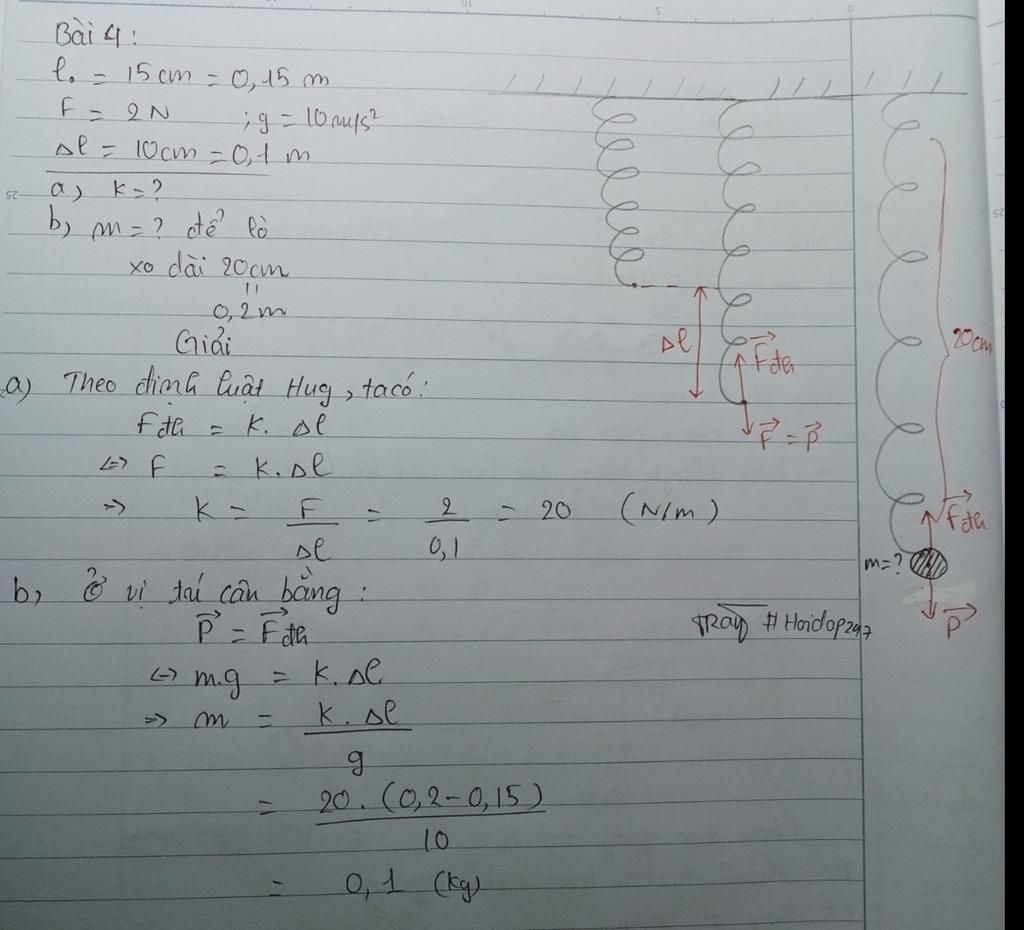 Bài 4:
l₀ = 15cm = 0,15 m
F = 2N ; g = 10m/s²
Δl = 10cm = 0,1 m
a) k = ?
b, m = ? để lò
xo dài 20cm
"
0,2m
Giải
a) Theo định luật Hug, ta có:
Fđh = k. Δl
<=> F = k.Δl
=> k = F/Δl = 2/0,1 = 20 (N/m)
b, Ở vị trí cân bằng:
P⃗ = F⃗đh
<=> m.g = k.Δl
=> m = k.Δl/g
= 20.(0,2-0,15)/10
= 0,1 (kg)
Δl
F⃗đh
F⃗ = P⃗
20cm
F⃗đh
m=?
P⃗
#Hoidap247
10
5
0
25